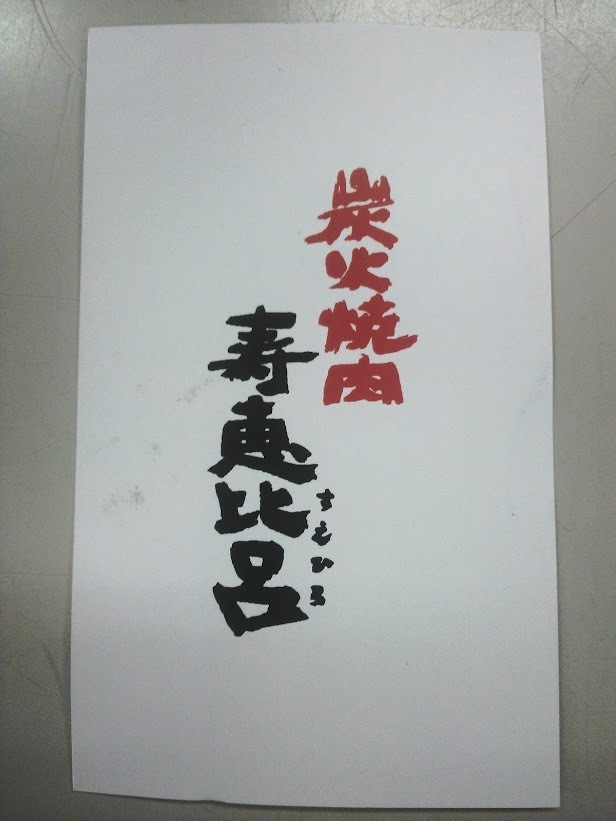 炭火焼肉
寿恵比呂
すえひろ